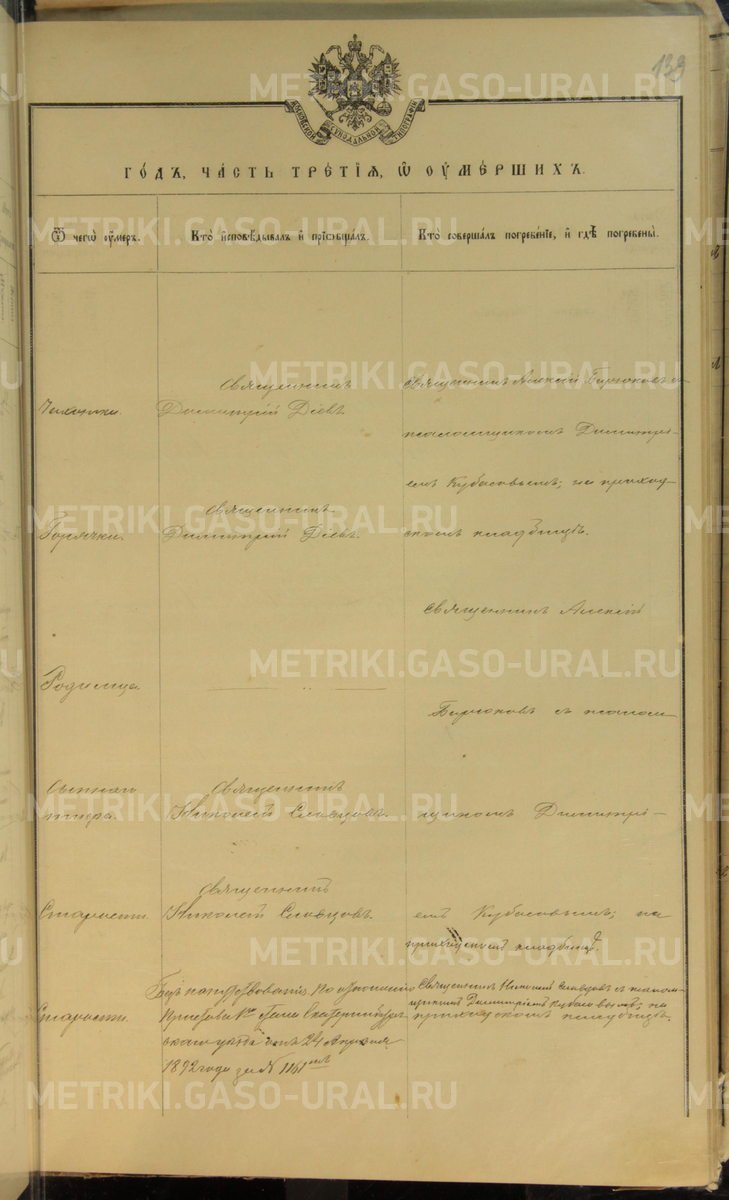 139
МОСКОВСКОЙ СѴНОДАЛЬНОЙ ТИПОГРАФІИ
ГО́ДЪ, ЧА́СТЬ ТРЕ́ТІѦ, Ѡ҆ ОУ҆МЕ́РШИХЪ.
Ѿ чегѡ̀ оу҆́меръ.
Кто̀ и҆сповѣ́дывалъ и҆ прїѡбща́лъ.
Кто̀ соверша́лъ погребе́нїе, и҆ гдѣ̀ погребены̀.
Чахотки.
Священникъ
Димитрій Діевъ.
Священникъ Алексій Бирюковъ съ
псаломщикомъ Димитрі-
емъ Кубасовымъ; на приход-
скомъ кладбищѣ.
Горячки.
Священникъ
Димитрій Діевъ.
Родимца.
Священникъ Алексій
Бирюковъ съ псалом-
щикомъ Димитрі-
емъ Кубасовымъ; на
приходскомъ кладбищѣ.
Сыпнаго
тифа.
Священникъ
Николай Словцовъ.
Старости.
Священникъ
Николай Словцовъ.
Старости.
Безъ напутствованія. По отношенію
Пристава 1го стана Екатеринбург-
скаго уѣзда отъ 24 Апрѣля
1892 года за № 1161мъ
Священникъ Николай Словцовъ съ псалом-
щикомъ Димитріемъ Кубасовымъ; на
приходскомъ кладбищѣ.
METRIKI.GASO-URAL.RU